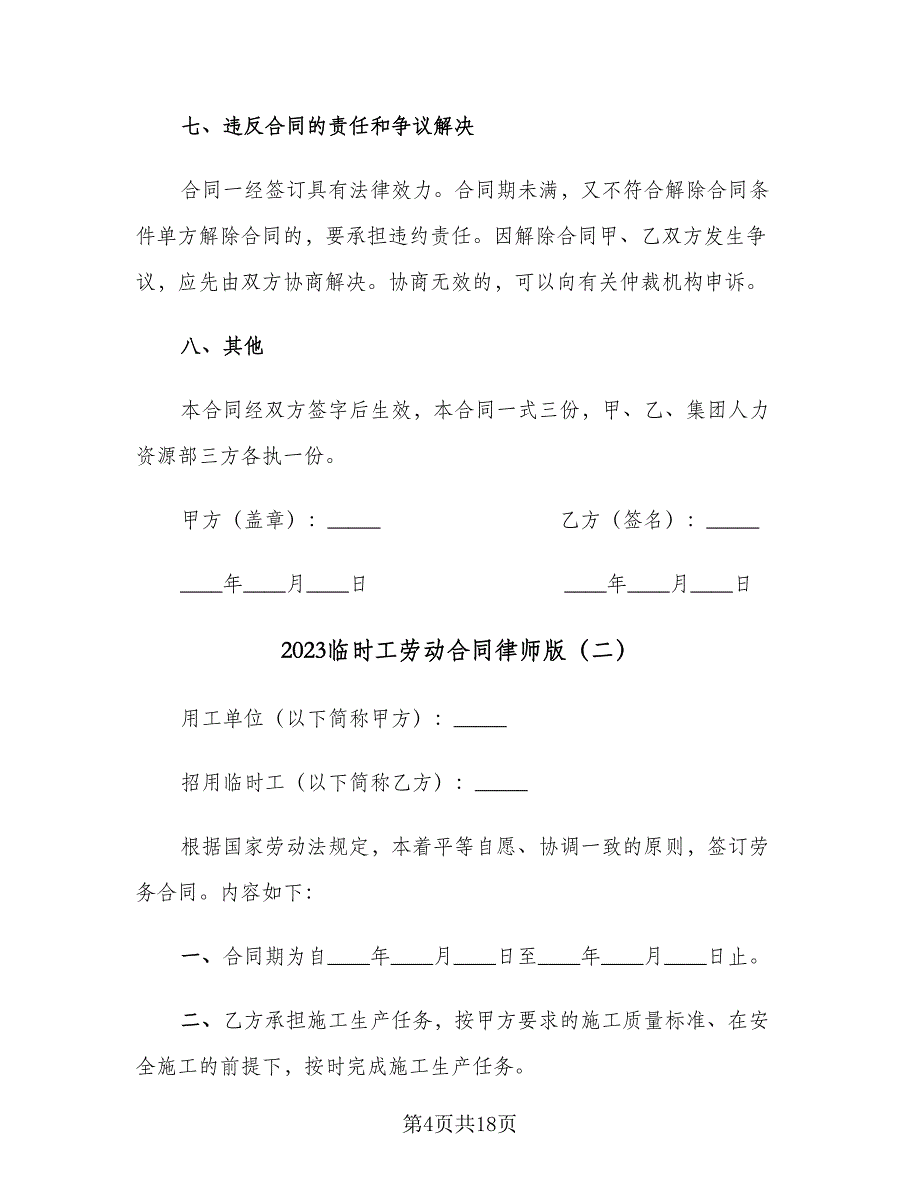 七、违反合同的责任和争议解决
合同一经签订具有法律效力。合同期未满，又不符合解除合同条
件单方解除合同的，要承担违约责任。因解除合同甲、乙双方发生争
议，应先由双方协商解决。协商无效的，可以向有关仲裁机构申诉。
八、其他
本合同经双方签字后生效，本合同一式三份，甲、乙、集团人力
资源部三方各执一份。
甲方（盖章）：_____ 乙方（签名）：_____
____年____月____日 ____年____月____日
2023临时工劳动合同律师版（二）
用工单位（以下简称甲方）：_____
招用临时工（以下简称乙方）：_____
根据国家劳动法规定，本着平等自愿、协调一致的原则，签订劳
务合同。内容如下：
一、合同期为自____年____月____日至____年____月____日止。
二、乙方承担施工生产任务，按甲方要求的施工质量标准、在安
全施工的前提下，按时完成施工生产任务。
第4页共18页